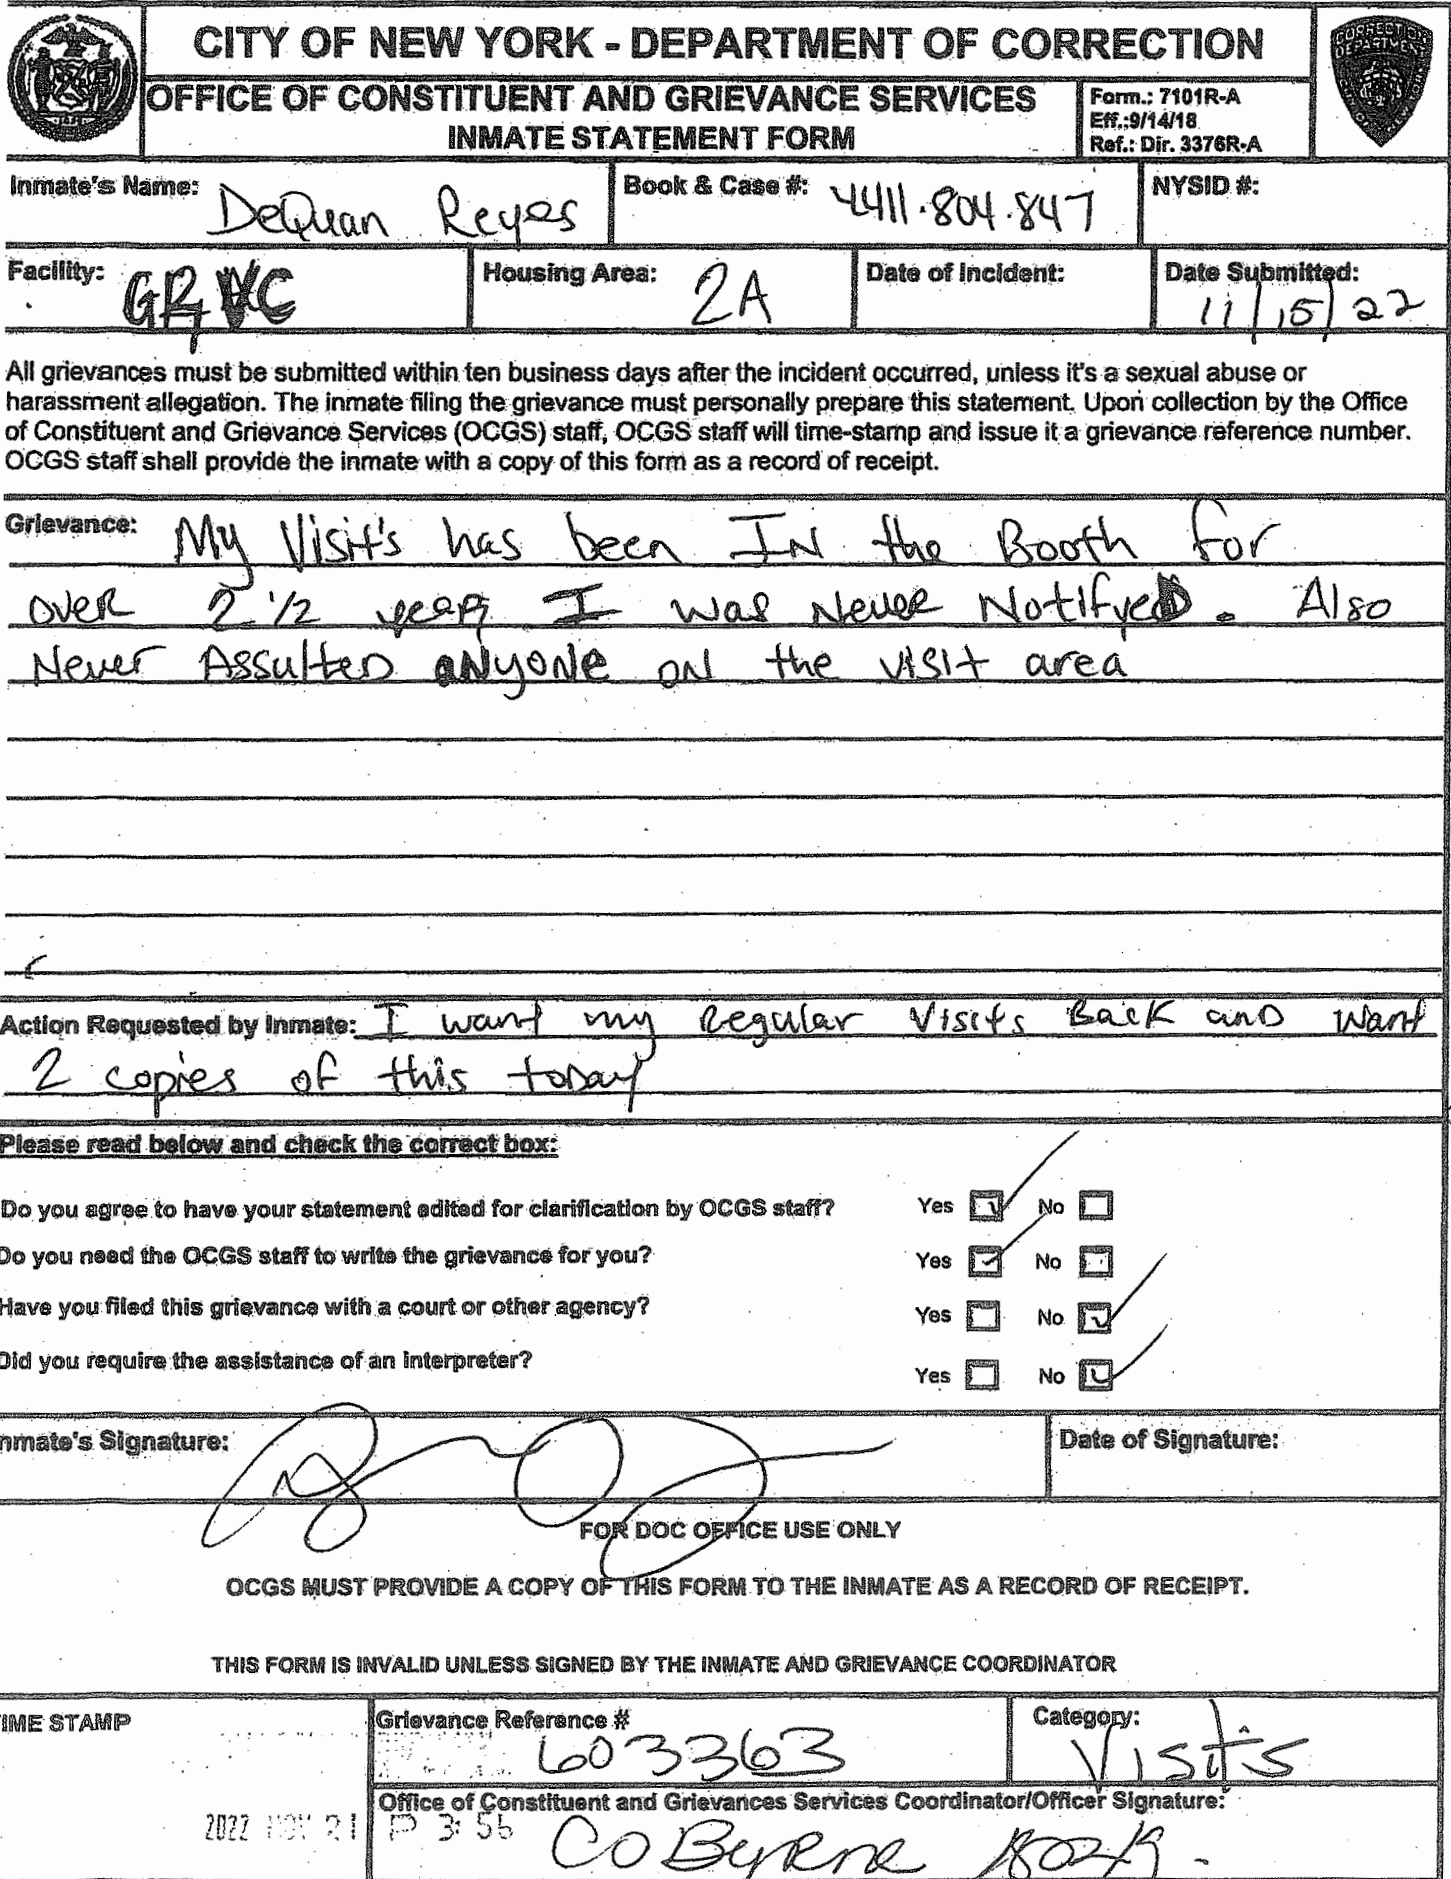 CITY OF NEW YORK - DEPARTMENT OF CORRECTION
OFFICE OF CONSTITUENT AND GRIEVANCE SERVICES
INMATE STATEMENT FORM
Form.: 7101R-A
Eff.:9/14/18
Ref.: Dir. 3376R-A
CORRECTION
DEPARTMENT
Inmate's Name: DeQuan Reyes
Book & Case #: 4411.804.847
NYSID #:
Facility: GRVC
Housing Area: 2A
Date of Incident:
Date Submitted: 11/15/22
All grievances must be submitted within ten business days after the incident occurred, unless it's a sexual abuse or
harassment allegation. The inmate filing the grievance must personally prepare this statement. Upon collection by the Office
of Constituent and Grievance Services (OCGS) staff, OCGS staff will time-stamp and issue it a grievance reference number.
OCGS staff shall provide the inmate with a copy of this form as a record of receipt.
Grievance: My Visit's has been IN the Booth for
over 2 1/2 years I was Never Notifyed. Also
Never Assulted anyone on the visit area
Action Requested by Inmate: I want my Regular Visits Back and want
2 copies of this today
Please read below and check the correct box:
Do you agree to have your statement edited for clarification by OCGS staff? Yes No
Do you need the OCGS staff to write the grievance for you? Yes No
Have you filed this grievance with a court or other agency? Yes No
Did you require the assistance of an interpreter? Yes No
nmate's Signature:
Date of Signature:
FOR DOC OFFICE USE ONLY
OCGS MUST PROVIDE A COPY OF THIS FORM TO THE INMATE AS A RECORD OF RECEIPT.
THIS FORM IS INVALID UNLESS SIGNED BY THE INMATE AND GRIEVANCE COORDINATOR
IME STAMP
Grievance Reference # 603363
Category: Visits
2022 NOV 21 P 3:56
Office of Constituent and Grievances Services Coordinator/Officer Signature:
CO Byrne